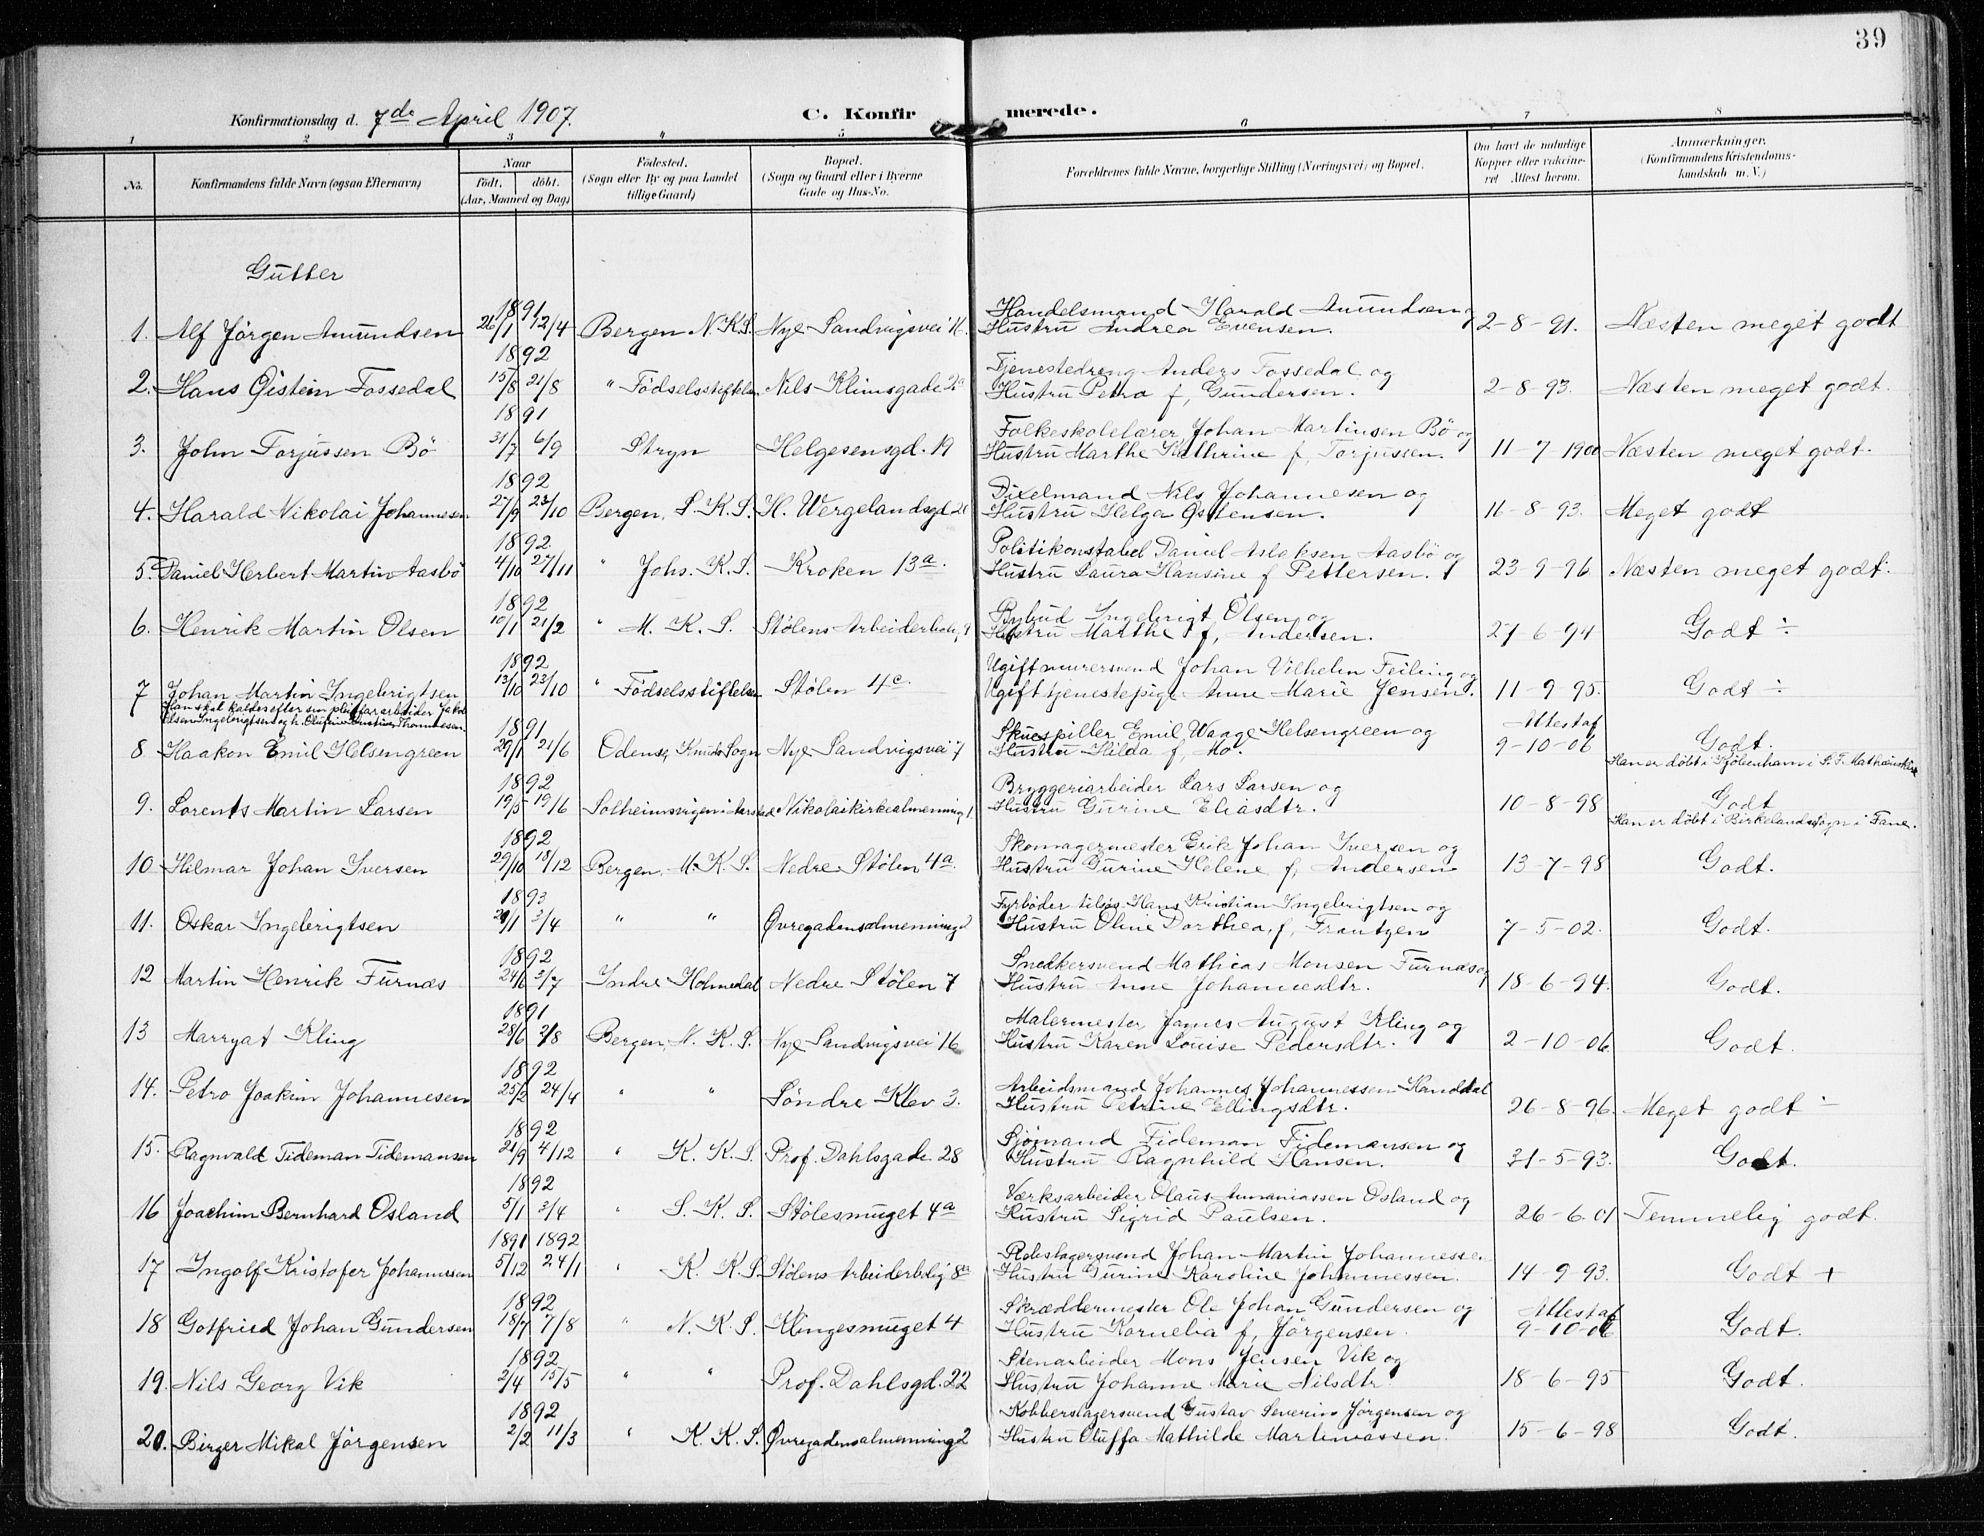 39
Konfirmationsdag d. 7de April 1907. C. Konfirmerede.
1 2 3 4 5 6 7 8
No. Konfirmandens fulde Navn (ogsaa Efternavn) Naar født. døbt. (Aar, Maaned og Dag) Fødested. (Sogn eller By og paa Landet tillige Gaard) Bopæl. (Sogn og Gaard eller i Byerne Gade og Hus-No. Forældrenes fulde Navne, borgerlige Stilling (Næringsvei) og Bopæl. Om havt de naturlige Kopper eller vaccineret Attest herom. Anmærkninger. (Konfirmandens Kristendomskundskab m. V.)
Gutter
1891 Handelsmand Harald Amundsen og
1. Alf Jörgen Amundsen 26/1 12/4 Bergen N.K.S. Nye Sandvigsvei 16. Hustru Andrea Evensen. 2-8-91. Næsten meget godt
1892 Tjenestedreng Anders Fossedal og
2. Hans Øistein Fossedal 15/8 21/8 " Födselsstiftelsen Nils Klimsgade 2a Hustru Petra f. Gundersen. 2-8-93. Næsten meget godt.
1891 Folkeskolelærer Johan Martinsen Bö og
3. John Torjussen Bö 31/7 6/9 Stryn Helgesensgd. 19 Hustru Marthe Kathrine f. Torjussen. 11-7 1900 Næsten meget godt.
1892 Dixelmand Nils Johannesen og
4. Harald Nikolai Johannesen 27/9 23/10 Bergen, S.K.S. H. Wergelandsgd Hustru Helga Östensen. 11-8-93. Meget godt
1892 Politikonstabel Daniel Aslaksen Aasbö og
5. Daniel Herbert Martin Aasbö 4/10 27/11 " Johs. K.S. Kroken 13a. Hustru Laura Hansine f Pettersen. 23-9-96 Næsten meget godt.
1892 Bybud Ingebrigt Olsen og
6. Henrik Martin Olsen 10/1 21/2 " M. K. S. Stølens Arbeiderbolig Hustru Marthe f. Andersen. 27-6-94 Godt ÷
1892 Ugift murersvend Johan Vilhelm Feiling og
7 Johan Martin Ingebrigtsen 13/10 23/10 " Födselsstiftelsen Stølen 4c. Ugift tjenestepige Anne Marie Jensen. 11-9-95. Godt ÷
Han skal kaldes efter sin pleiefar arbeider Jakob
Olsen Ingebrigtsen og h. Thomassen.
1891 Skuespiller Emil Waage Helsengreen og Attest af
8 Haakon Emil Helsengreen 29/1 21/6 Odense, Knuds Sogn Nye Sandvigsvei 7 Hustru Hilda f. Mo. 9-10-06 Godt.
Han er döbt i Kjöbenhavn i S.T. Mathæuskirke
1892 Bryggeriarbeider Lars Larsen og
9. Lorents Martin Larsen 19/5 19/6 Solheimsvigen i Aarstad Nikolaikirkealmenning 1. Hustru Gurine Eliasdtr. 10-8-98 Godt
Han er döbt i Birkelands Sogn i Fane.
1892 Skomagermester Erik Johan Iversen og
10 Hilmar Johan Iversen 29/10 18/12 Bergen, M.K.S. Nedre Stølen 4a. Hustru Gurine Helene f. Andersen 13-7-98 Godt.
1893 Fyrbøder Hans Kristian Ingebrigtsen og
11. Oskar Ingebrigtsen 29/1 3/4 " " Øvregadensalmenning 2 Hustru Oline Dorthea, f. Frantzen 7-5-02. Godt.
1892 Snedkersvend Mathias Monsen Furnæs og
12 Martin Henrik Furnæs 24/6 3/7 Indre Holmedal Nedre Stølen 7 Hustru Anne Johannesdtr. 18-6-94. Godt.
1891 Malermester James August Kling og
13 Marryat Kling 28/6 2/8 Bergen, N.K.S. Nye Sandvigsvei 16 Hustru Karen Louise Pedersdtr. 2-10-06. Godt.
1892 Arbeidsmand Johannes Johannessen Handdal
14. Petro Joakim Johannesen 25/2 24/4 " " Søndre Klev 3. Hustru Petrine Ellingsdtr. 26-8-96. Meget godt ÷
1892 Sjømand Tideman Tidemansen og
15. Ragnvald Tideman Tidemansen 21/9 4/12 " K.K.S. Prof. Dahlsgade 28 Hustru Ragnhild Hansen. 31-5-93. Godt.
1892 Værksarbeider Olaus Annaniassen Osland og
16 Joachim Bernhard Osland 5/1 3/4 " S.K.S. Stølesmuget 4a Hustru Sigrid Paulsen. 26-6.01 Temmelig godt.
1891 1892 Rebslagersvend Johan Martin Johannessen
17 Ingolf Kristofer Johannessen 5/12 24/1 " K.K.S. Stølens Arbeiderbolig 8a Hustru Gurine Karoline Johannessen. 14-9-93. Godt +
1892 Skræddermester Ole Johan Gundersen og Attest af
18 Gotfried Johan Gundersen 18/7 7/8 " N.K.S. Klingesmuget 4 Hustru Kornelia f. Jørgensen. 9-10-06 Godt.
1892 Stenarbeider Mons Jensen Vik og
19. Nils Georg Vik 2/4 15/5 " " Prof. Dahlsgd. 22 Hustru Johanne Marie Nilsdtr. 18-6-95 Godt.
1892 Kobberslagersvend Gustav Severin Jørgensen og
20. Birger Mikal Jørgensen 2/2 11/3 " K.K.S. Øvregadensalmenning 2 Hustru Oluffa Mathilde Martinussen. 15-6-98 Godt.